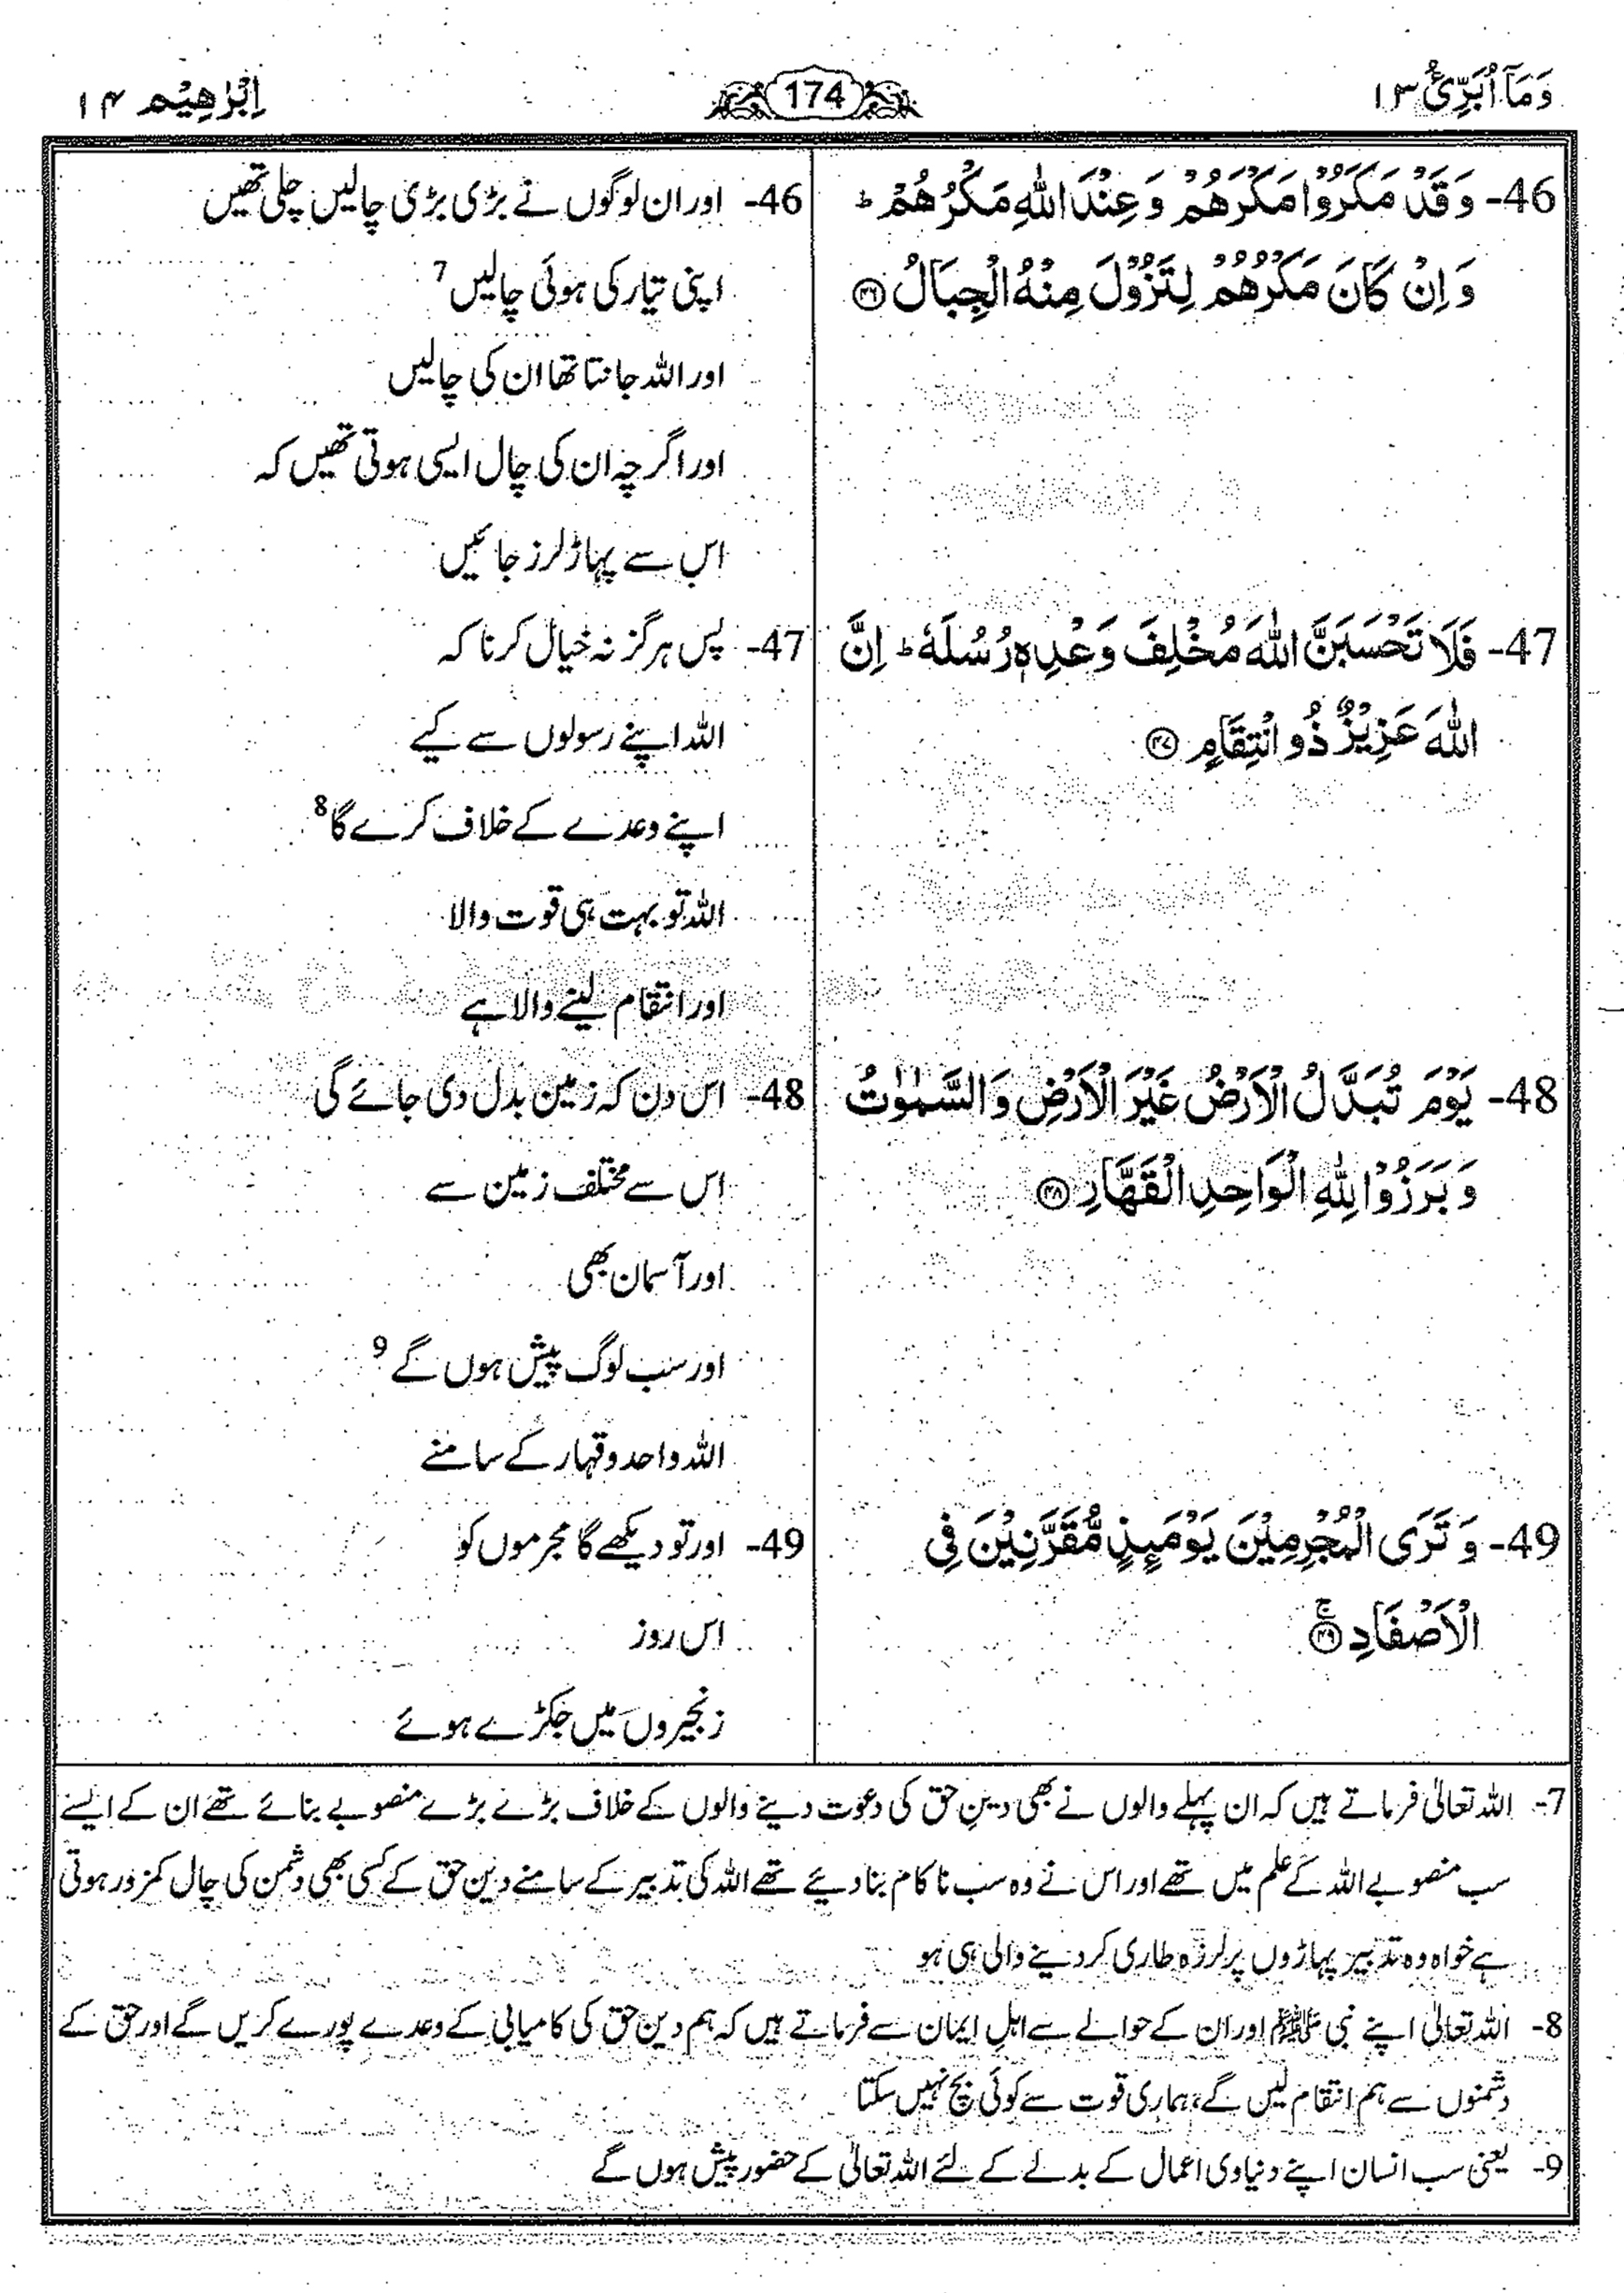 وَمَآ اُبَرِّئُ ۱۳
174
اِبْرٰهِيْم ۱۴
46- وَ قَدْ مَكَرُوْا مَكْرَهُمْ وَ عِنْدَ اللّٰهِ مَكْرُهُمْ ؕ
وَ اِنْ كَانَ مَكْرُهُمْ لِتَزُوْلَ مِنْهُ الْجِبَالُ ﴿۴۶﴾
47- فَلَا تَحْسَبَنَّ اللّٰهَ مُخْلِفَ وَعْدِهٖ رُسُلَهٗ ؕ اِنَّ
اللّٰهَ عَزِيْزٌ ذُو انْتِقَامٍ ﴿۴۷﴾
48- يَوْمَ تُبَدَّلُ الْاَرْضُ غَيْرَ الْاَرْضِ وَ السَّمٰوٰتُ
وَ بَرَزُوْا لِلّٰهِ الْوَاحِدِ الْقَهَّارِ ﴿۴۸﴾
49- وَ تَرَى الْمُجْرِمِيْنَ يَوْمَىِٕذٍ مُّقَرَّنِيْنَ فِى
الْاَصْفَادِ ﴿۴۹﴾ ۚ
46- اور ان لوگوں نے بڑی بڑی چالیں چلی تھیں
اپنی تیار کی ہوئی چالیں 7
اور اللہ جانتا تھا ان کی چالیں
اور اگرچہ ان کی چال ایسی ہوتی تھیں کہ
اس سے پہاڑ لرز جائیں
47- پس ہرگز نہ خیال کرنا کہ
اللہ اپنے رسولوں سے کیے
اپنے وعدے کے خلاف کرے گا 8
اللہ تو بہت ہی قوت والا
اور انتقام لینے والا ہے
48- اس دن کہ زمین بدل دی جائے گی
اس سے مختلف زمین سے
اور آسمان بھی
اور سب لوگ پیش ہوں گے 9
اللہ واحد و قہار کے سامنے
49- اور تو دیکھے گا مجرموں کو
اس روز
زنجیروں میں جکڑے ہوئے
7- اللہ تعالیٰ فرماتے ہیں کہ ان پہلے والوں نے بھی دینِ حق کی دعوت دینے والوں کے خلاف بڑے بڑے منصوبے بنائے تھے ان کے ایسے
سب منصوبے اللہ کے علم میں تھے اور اس نے وہ سب ناکام بنا دیئے تھے اللہ کی تدبیر کے سامنے دینِ حق کے کسی بھی دشمن کی چال کمزور ہوتی
ہے خواہ وہ تدبیر پہاڑوں پر لرزہ طاری کر دینے والی ہی ہو
8- اللہ تعالیٰ اپنے نبی ﷺ اور ان کے حوالے سے اہلِ ایمان سے فرماتے ہیں کہ ہم دینِ حق کی کامیابی کے وعدے پورے کریں گے اور حق کے
دشمنوں سے ہم انتقام لیں گے، ہماری قوت سے کوئی بچ نہیں سکتا
9- یعنی سب انسان اپنے دنیاوی اعمال کے بدلے کے لئے اللہ تعالیٰ کے حضور پیش ہوں گے